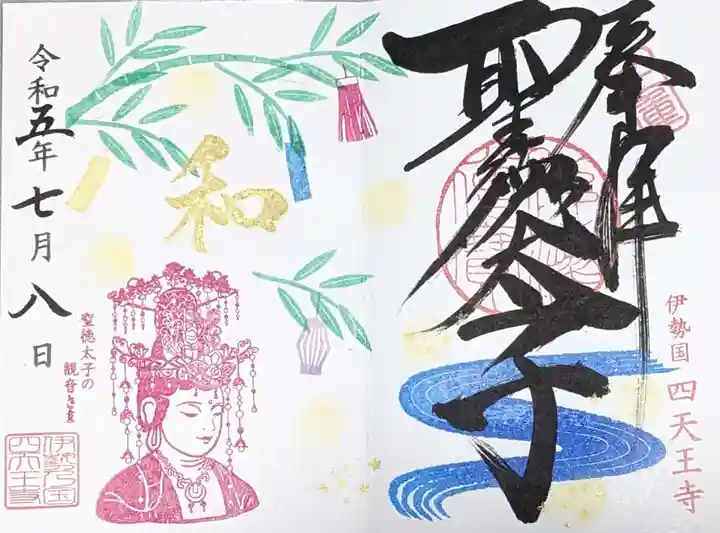 奉拝
聖徳太子
伊勢国 四天王寺
和
令和五年七月八日
聖徳太子の
伊勢国
四天王寺